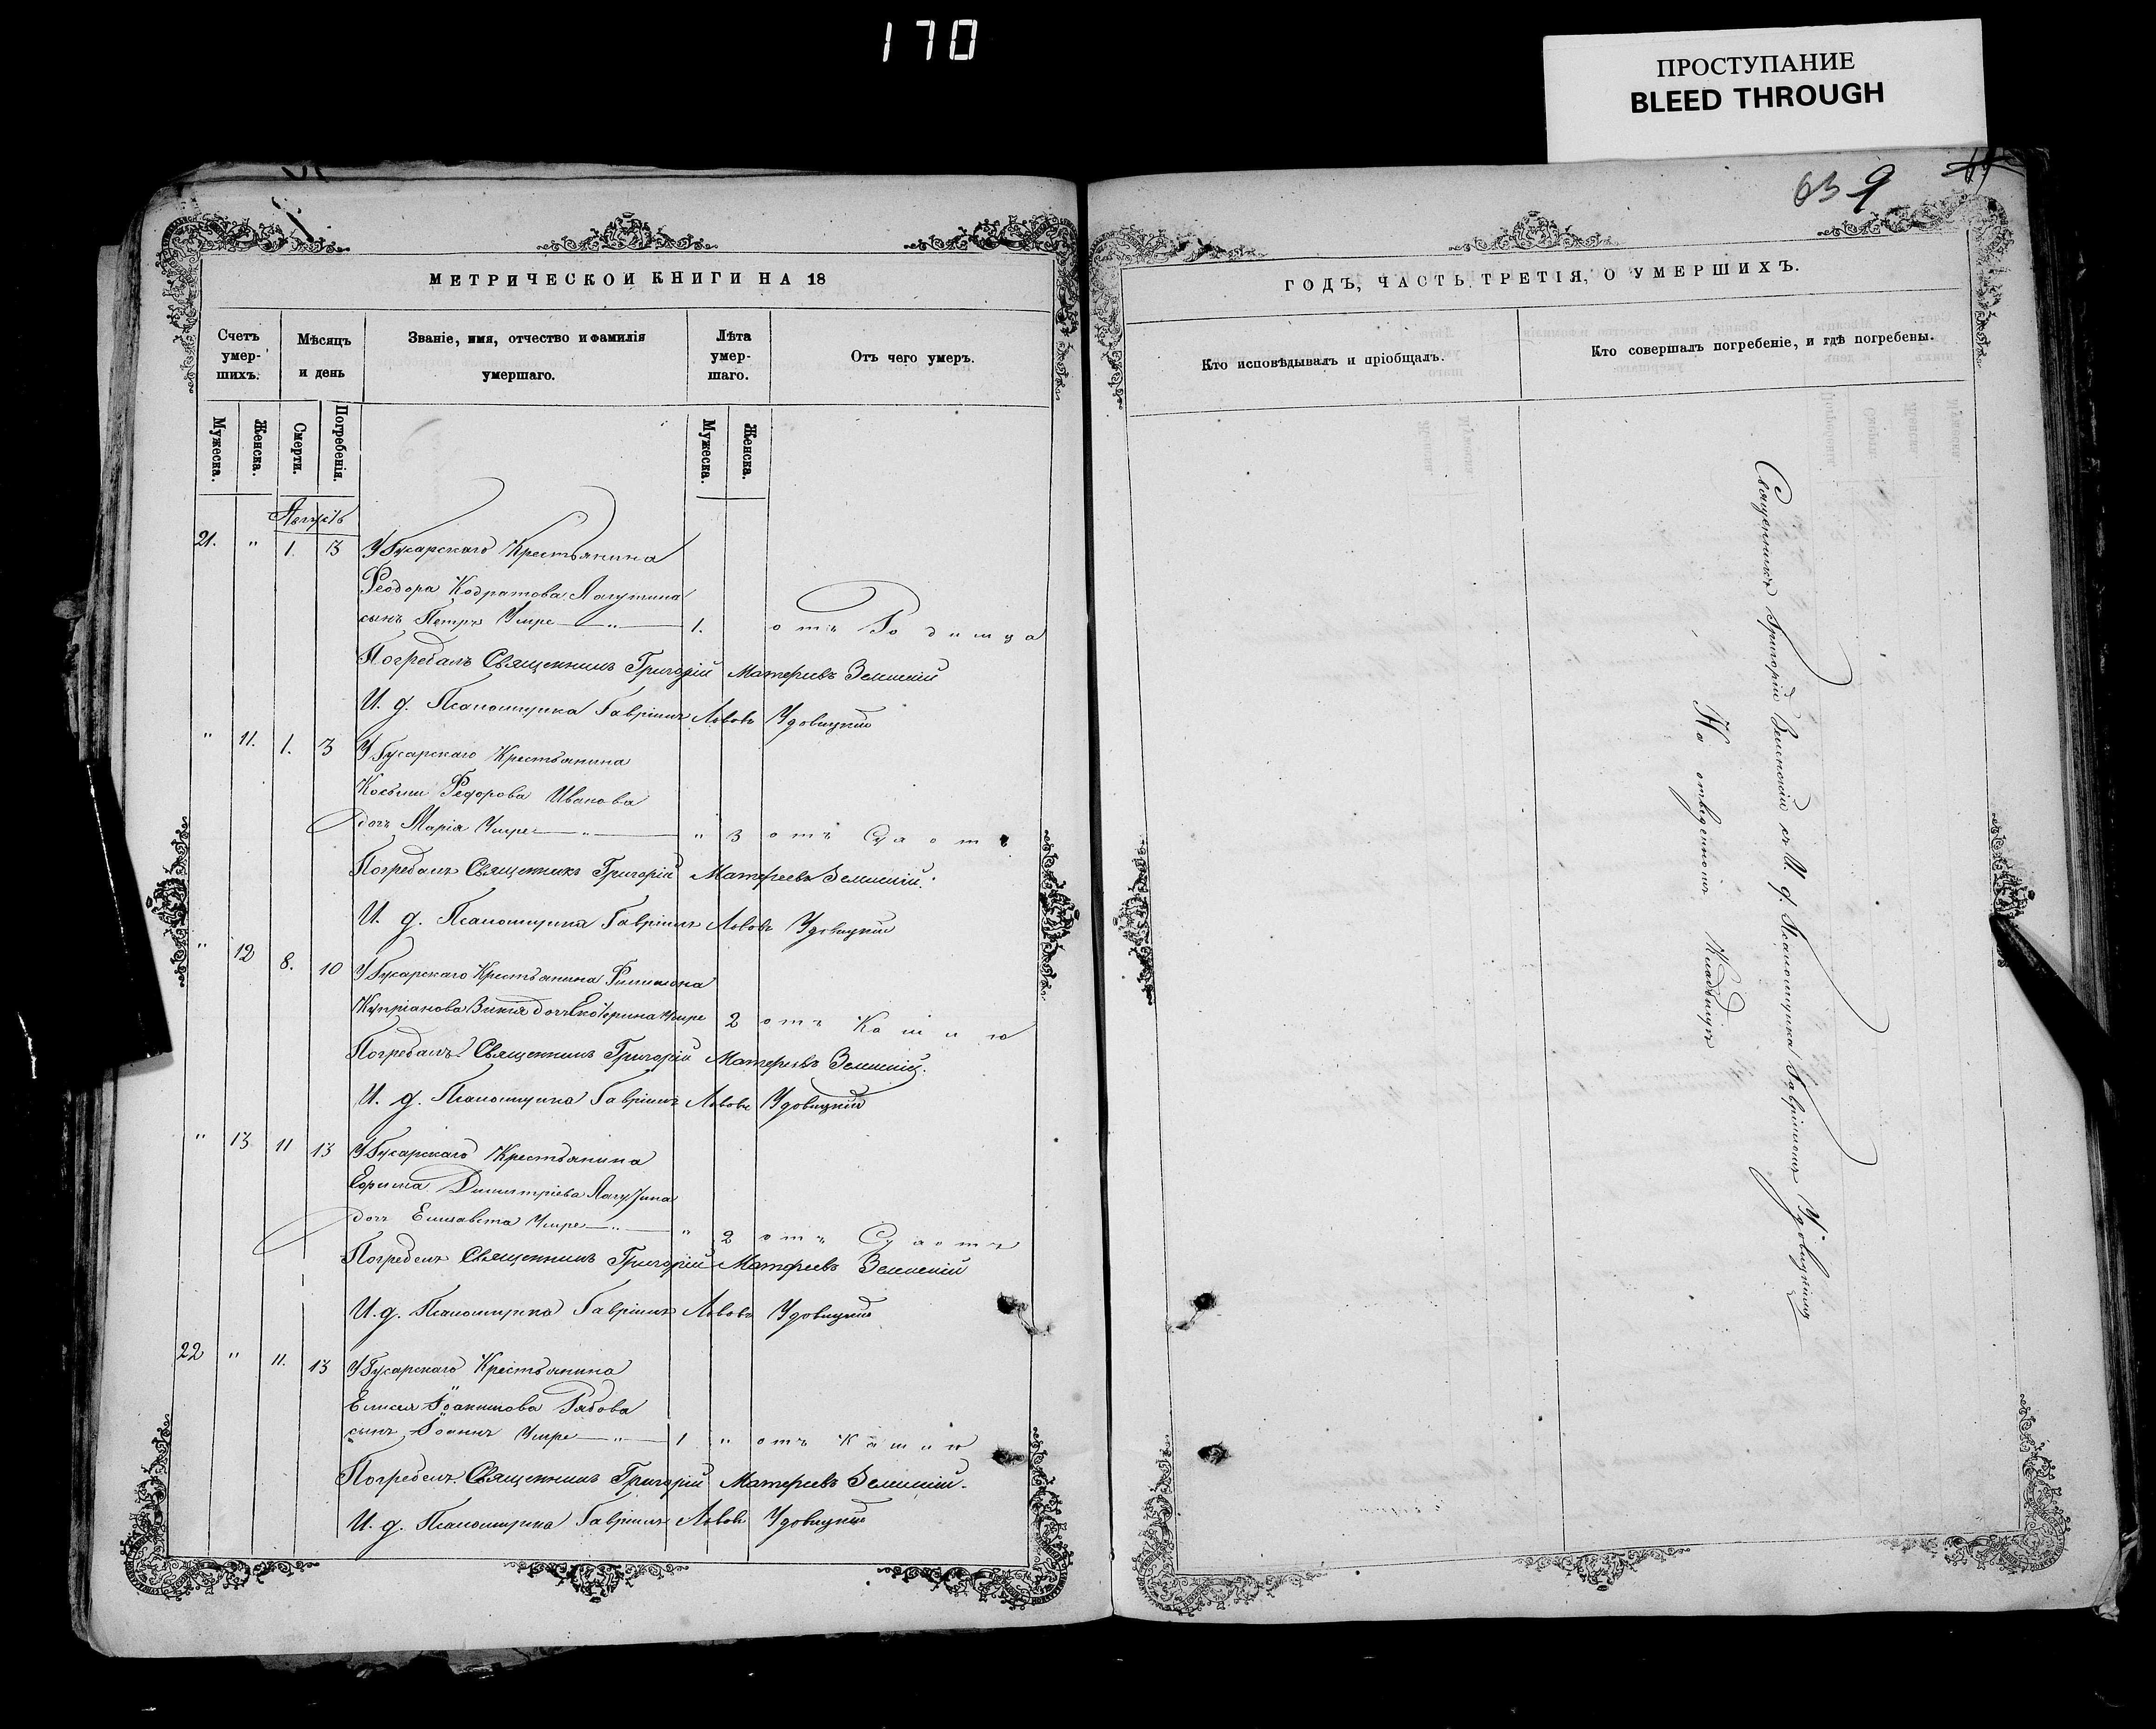 170
ПРОСТУПАНИЕ
BLEED THROUGH
63 9
МЕТРИЧЕСКОЙ КНИГИ НА 18
Счетъ умер-шихъ.
Мѣсяцъ и день
Званіе, имя, отчество и фамилія умершаго.
Лѣта умер-шаго.
Отъ чего умеръ.
Мужеска.
Женска.
Смерти.
Погребенія.
Мужеска.
Женска.
Августъ
21. " 1. 3 У Бугарскаго Крестьянина
Феодора Кодратова Лагутина
сынъ Петръ Умре — " — 1. отъ Родимца
Погребалъ Священникъ Григорій Матфеевъ Зеленскій
И. д. Псаломщика Гавріилъ Львовъ Удовицкій
" 11. 1. 3 У Бугарскаго Крестьянина
Косьмы Федорова Иванова
дочь Марія Умре — " — " 3 отъ
Погребалъ Священникъ Григорій Матфеевъ Зеленскій.
И. д. Псаломщика Гавріилъ Львовъ Удовицкій
" 12 8. 10 У Бугарскаго Крестьянина Филимона
Купріанова дочь Екатерина Умре 2 отъ Кашлю
Погребалъ Священникъ Григорій Матфеевъ Зеленскій.
И. д. Псаломщика Гавріилъ Львовъ Удовицкій
" 13 11 13 У Бугарскаго Крестьянина
Ефрима Димитріева Лагутина
дочь Елисавета Умре — " — " 2 отъ
Погребалъ Священникъ Григорій Матфеевъ Зеленскій
И. д. Псаломщика Гавріилъ Львовъ Удовицкій
22 " 11. 13 У Бугарскаго Крестьянина
Елисея Іоакимова Рябова
сынъ Іоаннъ Умре — " — 1 " отъ Кашлю
Погребалъ Священникъ Григорій Матфеевъ Зеленскій.
И. д. Псаломщика Гавріилъ Львовъ Удовицкій
ГОДЪ, ЧАСТЬ ТРЕТІЯ, О УМЕРШИХЪ.
Кто исповѣдывалъ и пріобщалъ.
Кто совершалъ погребеніе, и гдѣ погребены.
Священникъ Григорій Зеленскій съ И. д. Псаломщика Гавріиломъ Удовицкимъ
На отведенномъ Кладбищѣ